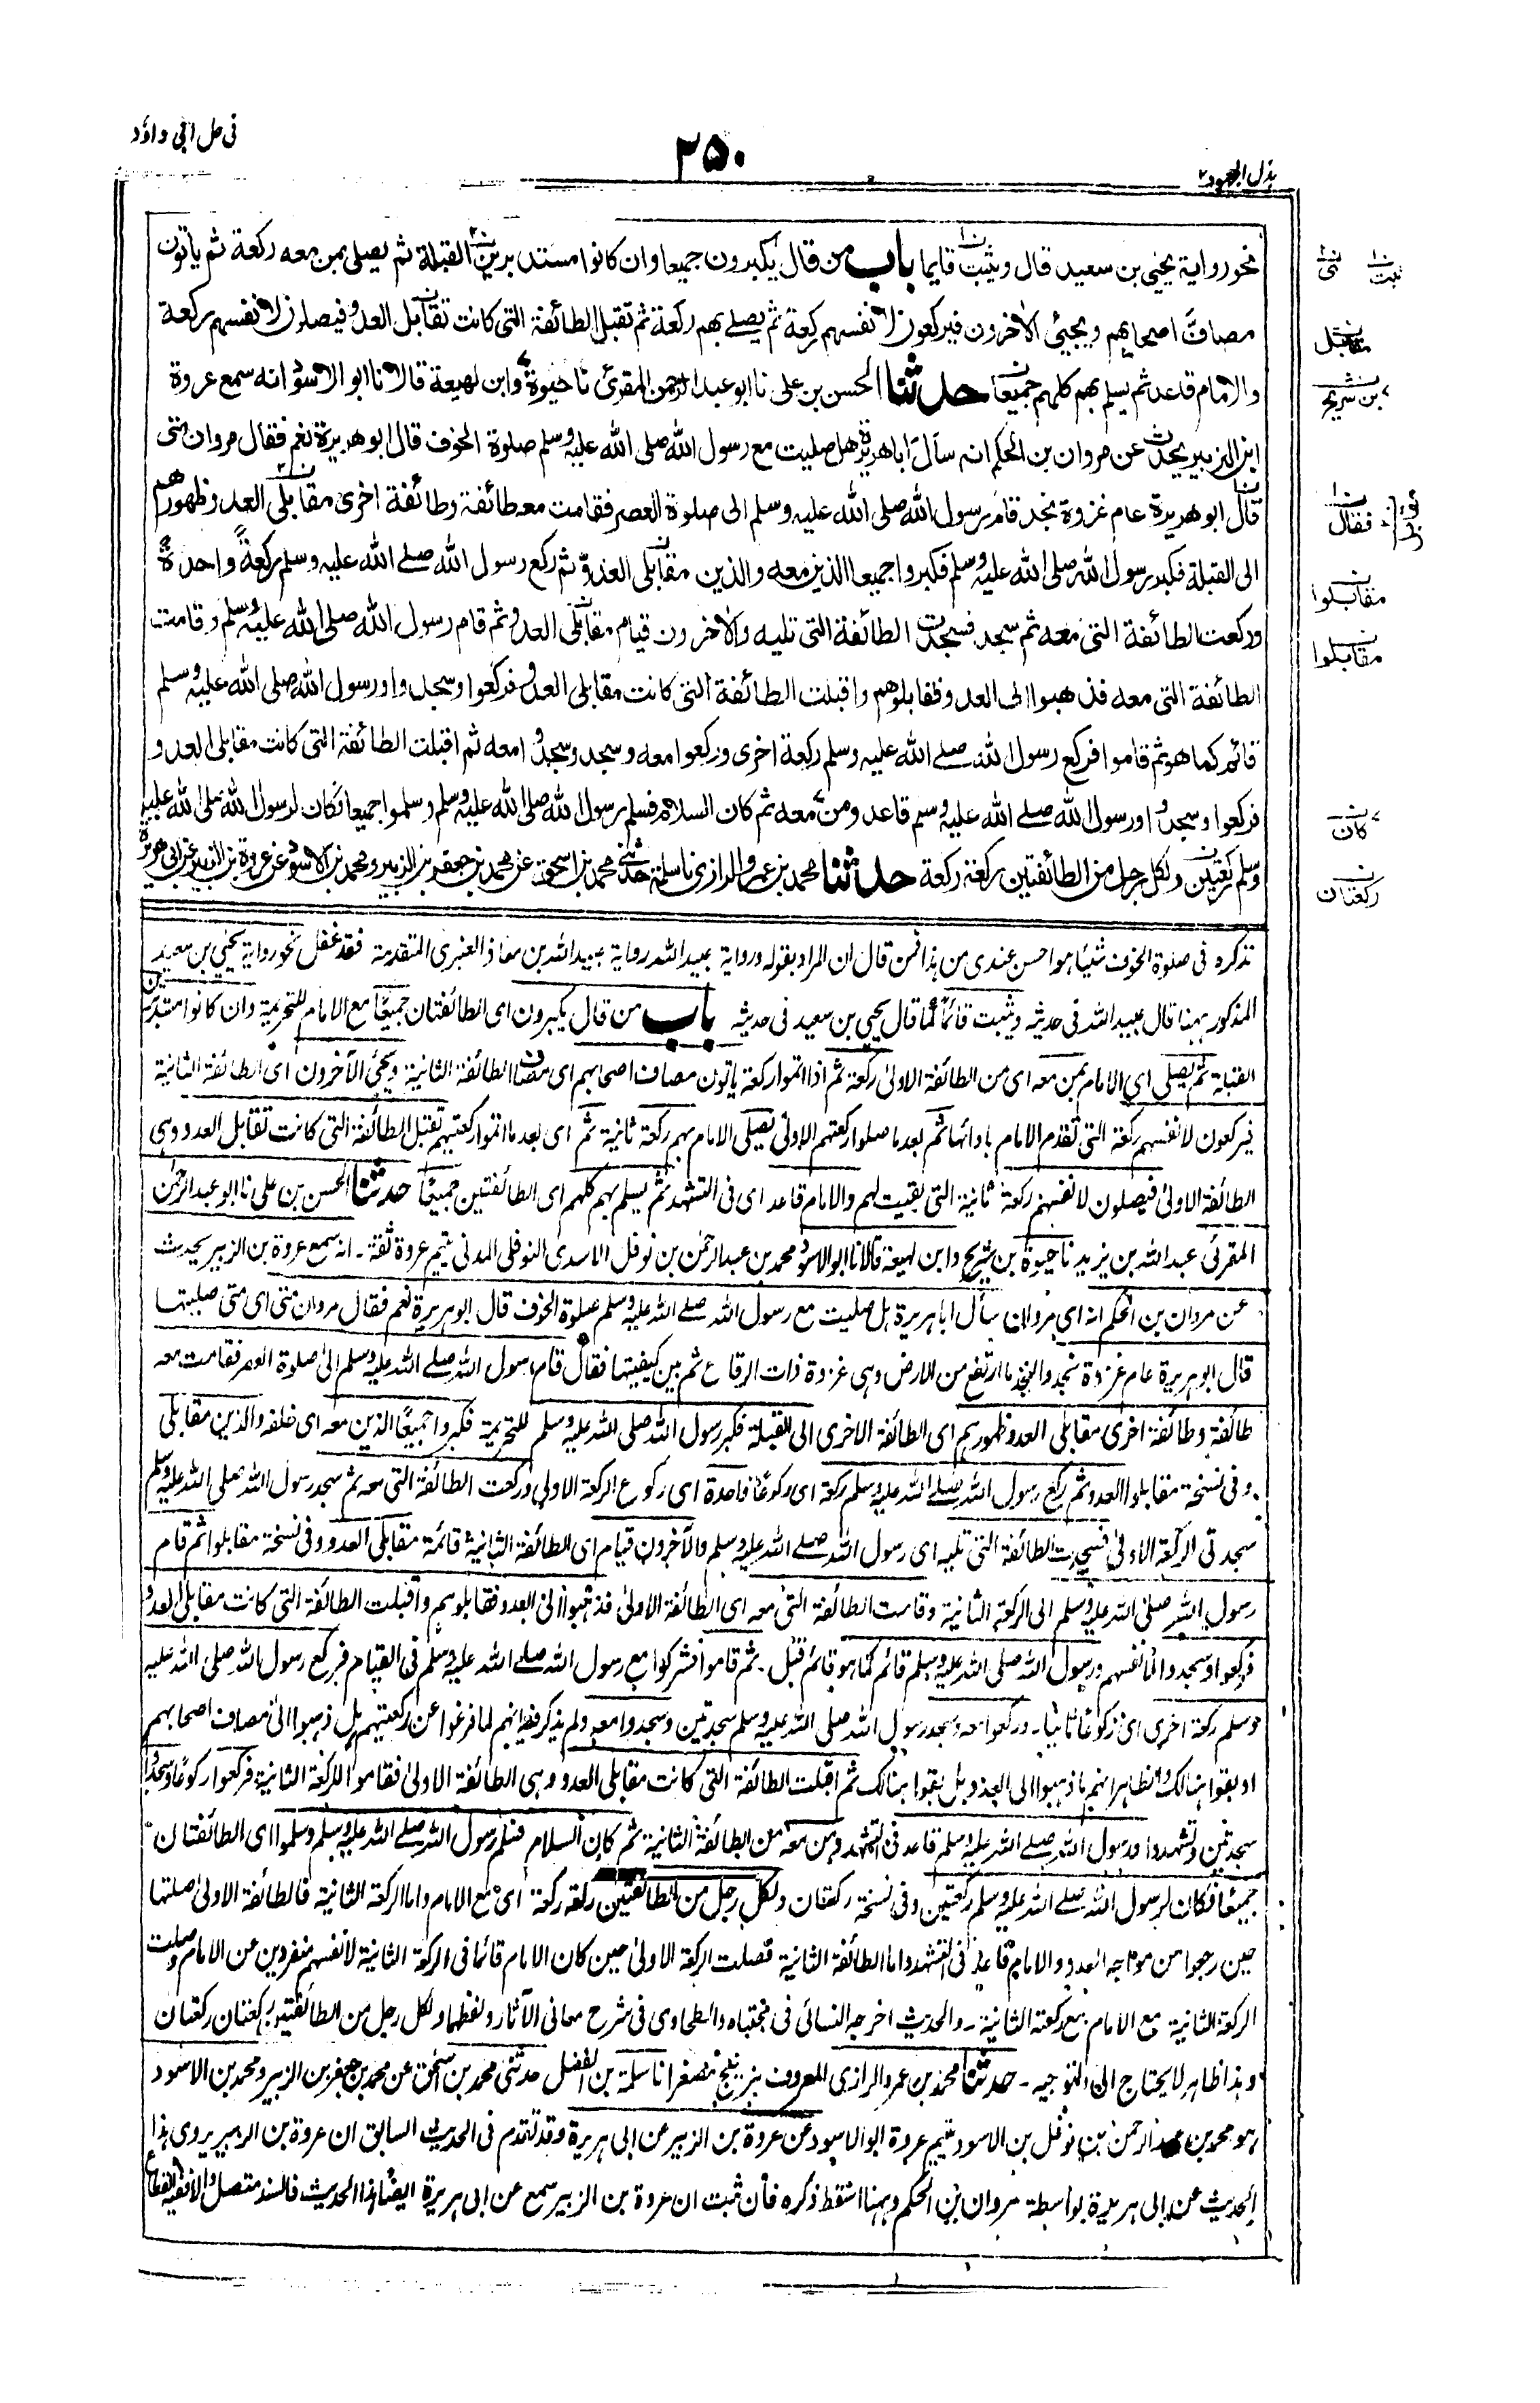 فی حل ابی داؤد
٢٥٠
بذل المجهود ٢
نحو رواية يحيى بن سعيد قال ويثبت قايما باب من قال يكبرون جميعا وان كانوا مستدبرين القبلة ثم يصلى بمن معه ركعة ثم ياتون
مصاف اصحابهم ويجيئ الاخرون فيركعون لانفسهم ركعة ثم يصلے بهم ركعة ثم تقبل الطائفة التى كانت تقابل العدو فيصلون لانفسهم ركعة
والامام قاعد ثم يسلم بهم كلهم جميعا حدثنا الحسن بن على نا ابو عبد الرحمن المقرئ نا حيوة وابن لهيعة قالا نا ابو الاسود انه سمع عروة
ابن الزبير يحدث عن مروان بن الحكم انه سأل ابا هريرة هل صليت مع رسول الله صلى الله عليه وسلم صلوة الخوف قال ابو هريرة نعم فقال مروان متى
قال ابو هريرة عام غزوة نجد قام رسول الله صلى الله عليه وسلم الى صلوة العصر فقامت معه طائفة وطائفة اخرى مقابلى العدو ظهورهم
الى القبلة فكبر رسول الله صلى الله عليه وسلم فكبروا جميعا الذين معه والذين مقابلى العدو ثم ركع رسول الله صلے الله عليه وسلم ركعة واحدة
وركعت الطائفة التى معه ثم سجد فسجدت الطائفة التى تليه والاخرون قيام مقابلى العدو ثم قام رسول الله صلى الله عليه وسلم وقامت
الطائفة التى معه فذهبوا الى العدو فقابلوهم واقبلت الطائفة التى كانت مقابلى العدو فركعوا وسجدوا ورسول الله صلى الله عليه وسلم
قائم كما هو ثم قاموا فركع رسول الله صلے الله عليه وسلم ركعة اخرى وركعوا معه وسجد وسجدوا معه ثم اقبلت الطائفة التى كانت مقابلى العدو
فركعوا وسجدوا ورسول الله صلے الله عليه وسلم قاعد ومن معه ثم كان السلام فسلم رسول الله صلى الله عليه وسلم وسلموا جميعا فكان لرسول الله صلى الله عليه
وسلم ركعتين ولكل رجل من الطائفتين ركعة ركعة حدثنا محمد بن عمرو الرازى نا سلمة حدثنى محمد بن اسحق عن محمد بن جعفر بن الزبير ومحمد بن الاسود عن عروة بن الزبير عن ابى هريرة
ثبت
بن شريح
فقال
مقابلوا
مقابلوا
كان
ركعتان
تذكره فى صلوة الخوف شيئا هو احسن عندى من هذا فمن قال ان المراد بقوله ورواية عبيد الله رواية عبيد الله بن معاذ العنبرى المتقدمة فقد غفل نحو رواية يحيى بن سعيد
المذكور ههنا قال عبيد الله فى حديثه ويثبت قائما كما قال يحيى بن سعيد فى حديثه باب من قال يكبرون اى الطائفتان جميعًا مع الامام للتحريمة وان كانوا مستدبرين
القبلة ثم يصلى اى الامام بمن معه اى من الطائفة الاولى ركعة ثم اذا اتموا ركعة ياتون مصاف اصحابهم اى مصاف الطائفة الثانية ويجئ الآخرون اى الطائفة الثانية
فيركعون لانفسهم ركعة التى تقدم الامام بادائها ثم بعد ما صلوا ركعتهم الاولى يصلى الامام بهم ركعة ثانية ثم اى بعد ما اتموا ركعتيهم تقبل الطائفة التى كانت تقابل العدو وهى
الطائفة الاولى فيصلون لانفسهم ركعة ثانية التى بقيت لهم والامام قاعد اى فى التشهد ثم يسلم بهم كلهم اى الطائفتين جميعًا حدثنا الحسن بن على نا ابو عبد الرحمٰن
المقرئ عبد الله بن يزيد نا حيوة بن شريح وابن لهيعة قالا نا ابو الاسود محمد بن عبد الرحمٰن بن نوفل الاسدى النوفلى المدنى يتيم عروة ثقة ۔ انه سمع عروة بن الزبير يحدث
عن مروان بن الحكم انه اى مروان سأل ابا هريرة هل صليت مع رسول الله صلے الله عليه وسلم صلوة الخوف قال ابو هريرة نعم فقال مروان متى اى متى صليتها
قال ابو هريرة عام غزوة نجد والنجد ما ارتفع من الارض وهى غزوة ذات الرقاع ثم بين كيفيتها فقال قام رسول الله صلے الله عليه وسلم الى صلوة العصر فقامت معه
طائفة وطائفة اخرى مقابلى العدو ظهورهم اى الطائفة الاخرى الى القبلة فكبر رسول الله صلى الله عليه وسلم للتحريمة فكبروا جميعًا الذين معه اى خلفه والذين مقابلى
وفى نسخة مقابلوا العدو ثم ركع رسول الله صلے الله عليه وسلم ركعة اى ركوعًا واحدة اى ركوع الركعة الاولى وركعت الطائفة التى معه ثم سجد رسول الله صلى الله عليه وسلم
سجدتى الركعة الاولى فسجدت الطائفة التى تليه اى رسول الله صلے الله عليه وسلم والآخرون قيام اى الطائفة الثانية قائمة مقابلى العدو وفى نسخة مقابلوا ثم قام
رسول الله صلى الله عليه وسلم الى الركعة الثانية وقامت الطائفة التى معه اى الطائفة الاولى فذهبوا الى العدو فقابلوهم واقبلت الطائفة التى كانت مقابلى العدو
فركعوا وسجدوا لانفسهم ورسول الله صلى الله عليه وسلم قائم كما هو قائم قبل ۔ ثم قاموا فشركوا مع رسول الله صلے الله عليه وسلم فى القيام فركع رسول الله صلى الله عليه
وسلم ركعة اخرى اى ركوعًا ثانيا ۔ وركعوا معه وسجد رسول الله صلى الله عليه وسلم سجدتين وسجدوا معه ولم يذكر فيه انهم لما فرغوا عن ركعتيهم هل ذهبوا الى مصاف اصحابهم
او بقوا هنالك والظاهر انهم ما ذهبوا الى العدو بل بقوا هنالك ثم اقبلت الطائفة التى كانت مقابلى العدو وهى الطائفة الاولى فقاموا للركعة الثانية فركعوا ركوعًا وسجدوا
سجدتين وتشهدوا ورسول الله صلے الله عليه وسلم قاعد فى التشهد ومن معه من الطائفة الثانية ثم كان السلام فسلم رسول الله صلے الله عليه وسلم وسلموا اى الطائفتان
جميعًا فكان لرسول الله صلے الله عليه وسلم ركعتين وفى نسخة ركعتان ولكل رجل من الطائفتين ركعة ركعة اى مع الامام واما الركعة الثانية فالطائفة الاولى صلتها
حين رجعوا من مواجه العدو والامام قاعد فى التشهد واما الطائفة الثانية فصلت الركعة الاولى حين كان الامام قائما فى الركعة الثانية لانفسهم منفردين عن الامام وصلت
الركعة الثانية مع الامام مع ركعته الثانية ۔ والحديث اخرجه النسائى فى مجتباه والطحاوى فى شرح معانى الآثار ولفظهما ولكل رجل من الطائفتين ركعتان ركعتان
وهذا ظاهر لا يحتاج الى التوجيه ۔ حدثنا محمد بن عمرو الرازى المعروف بزنيج مصغرا نا سلمة بن الفضل حدثنى محمد بن اسحق عن محمد بن جعفر بن الزبير ومحمد بن الاسود
هو محمد بن عبد الرحمن بن نوفل بن الاسود يتيم عروة ابو الاسود عن عروة بن الزبير عن ابى هريرة وقد تقدم فى الحديث السابق ان عروة بن الزبير يروى هذا
الحديث عن ابى هريرة بواسطة مروان بن الحكم وههنا اسقط ذكره فان ثبت ان عروة بن الزبير سمع عن ابى هريرة ايضًا هذا الحديث فالسند متصل والا ففيه انقطاع